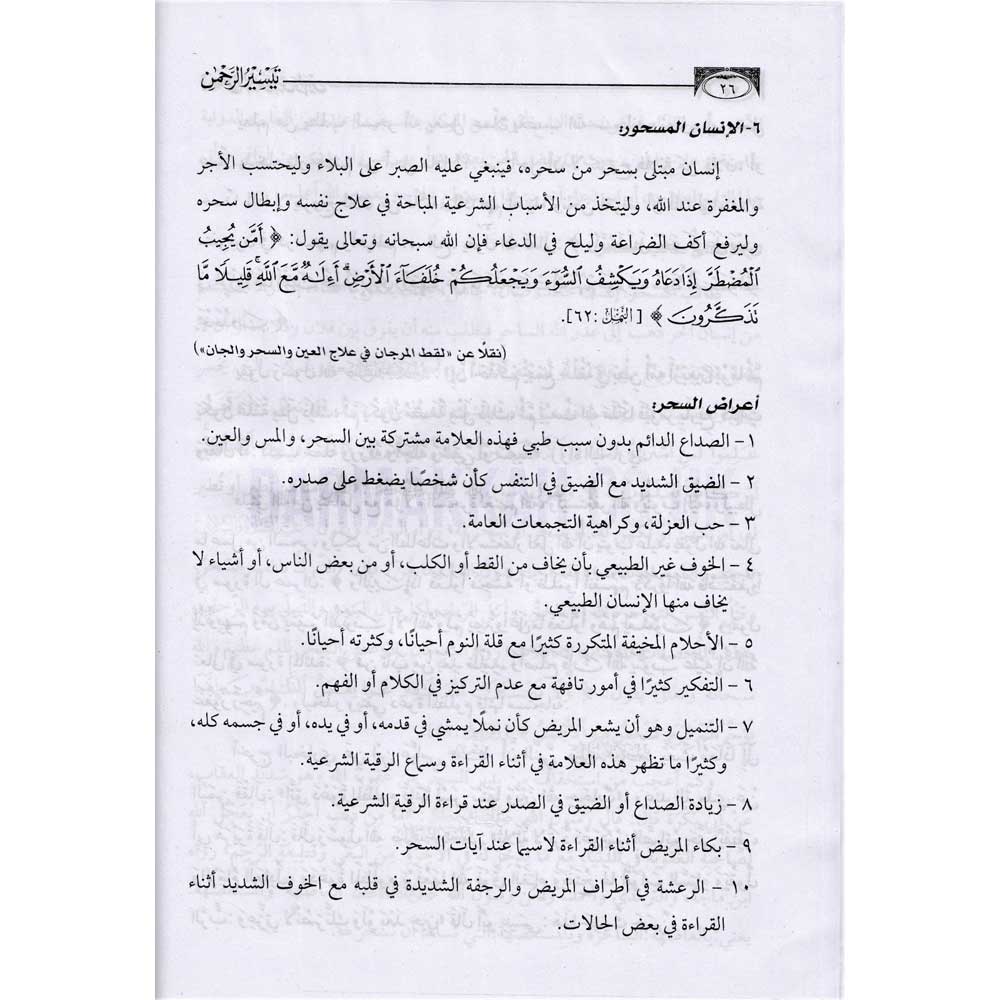 ٢٦
تَيسِيْرُ الرَّحْمٰن
٦-الإنسان المسحور:
إنسان مبتلى بسحر من سحره، فينبغي عليه الصبر على البلاء وليحتسب الأجر
والمغفرة عند الله، وليتخذ من الأسباب الشرعية المباحة في علاج نفسه وإبطال سحره
وليرفع أكف الضراعة وليلح في الدعاء فإن الله سبحانه وتعالى يقول: ﴿ أَمَّن يُجِيبُ
الْمُضْطَرَّ إِذَا دَعَاهُ وَيَكْشِفُ السُّوءَ وَيَجْعَلُكُمْ خُلَفَاءَ الْأَرْضِ ۗ أَءِلَٰهٌ مَّعَ اللَّهِ ۚ قَلِيلًا مَّا
تَذَكَّرُونَ ﴾ [النمل:٦٢].
(نقلًا عن «لقط المرجان في علاج العين والسحر والجان»)
أعراض السحر:
١ - الصداع الدائم بدون سبب طبي فهذه العلامة مشتركة بين السحر، والمس والعين.
٢ - الضيق الشديد مع الضيق في التنفس كأن شخصًا يضغط على صدره.
٣ - حب العزلة، وكراهية التجمعات العامة.
٤ - الخوف غير الطبيعي بأن يخاف من القط أو الكلب، أو من بعض الناس، أو أشياء لا
يخاف منها الإنسان الطبيعي.
٥ - الأحلام المخيفة المتكررة كثيرًا مع قلة النوم أحيانًا، وكثرته أحيانًا.
٦ - التفكير كثيرًا في أمور تافهة مع عدم التركيز في الكلام أو الفهم.
٧ - التنميل وهو أن يشعر المريض كأن نملًا يمشي في قدمه، أو في يده، أو في جسمه كله،
وكثيرًا ما تظهر هذه العلامة في أثناء القراءة وسماع الرقية الشرعية.
٨ - زيادة الصداع أو الضيق في الصدر عند قراءة الرقية الشرعية.
٩ - بكاء المريض أثناء القراءة لاسيما عند آيات السحر.
١٠ - الرعشة في أطراف المريض والرجفة الشديدة في قلبه مع الخوف الشديد أثناء
القراءة في بعض الحالات.